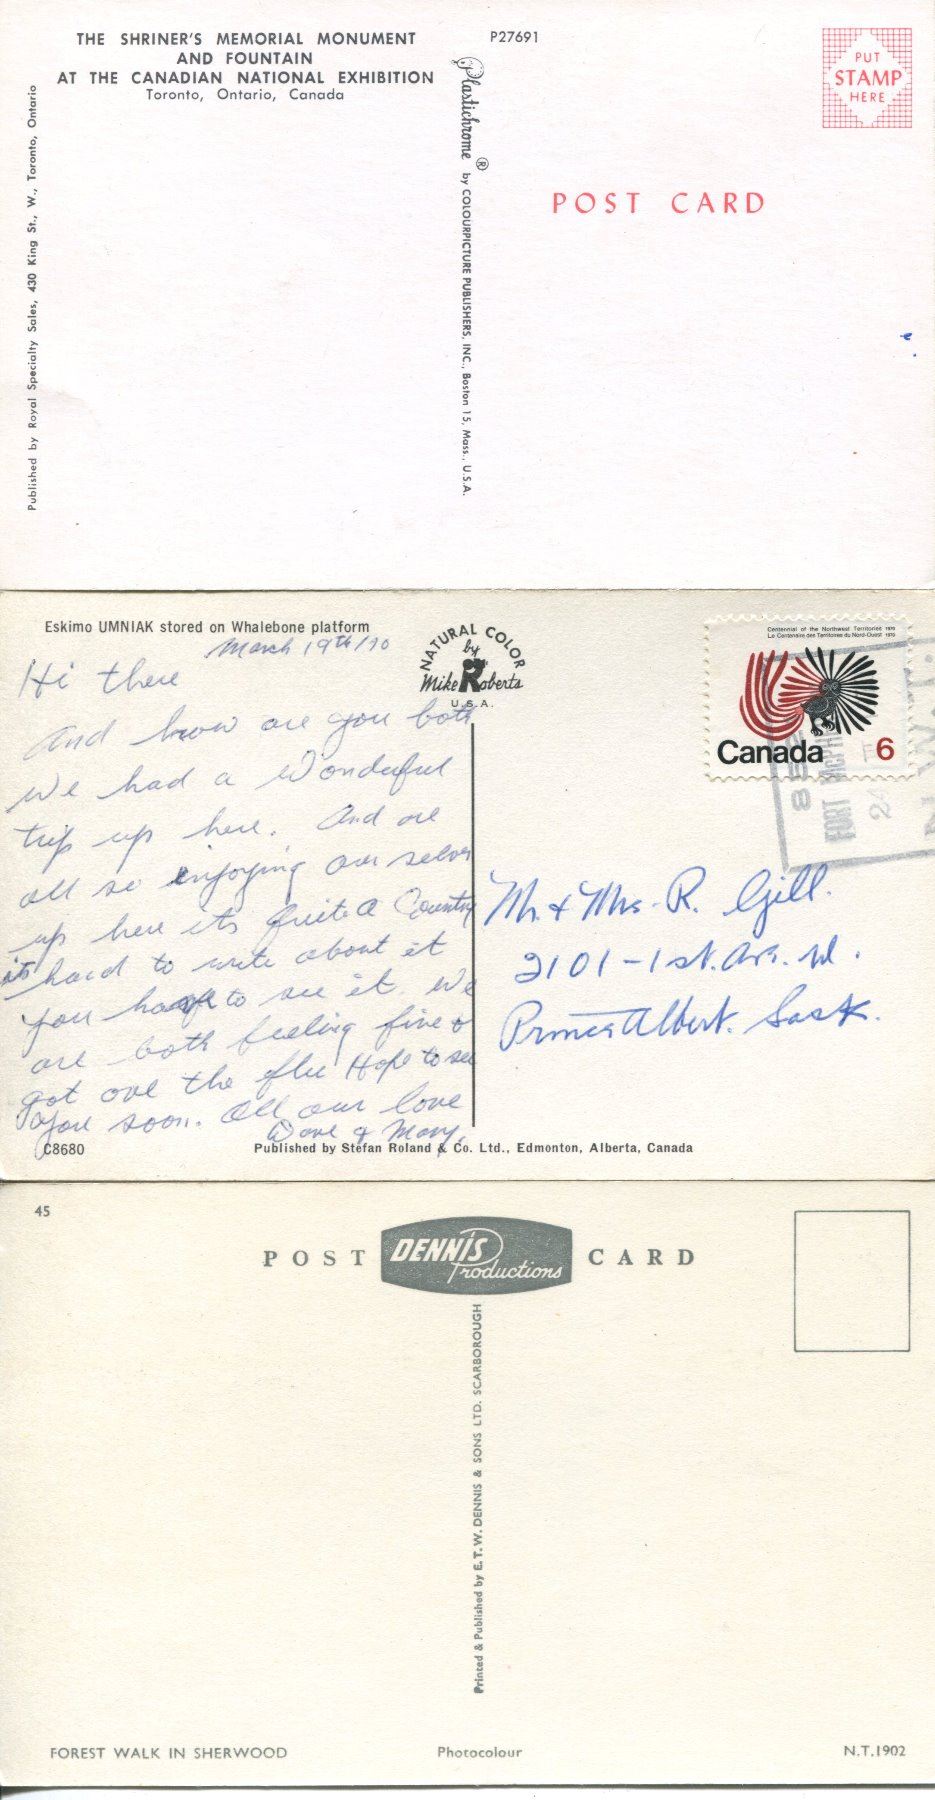 THE SHRINER'S MEMORIAL MONUMENT
AND FOUNTAIN
AT THE CANADIAN NATIONAL EXHIBITION
Toronto, Ontario, Canada
P27691
PUT
STAMP
HERE
POST CARD
Published by Royal Specialty Sales, 430 King St., W., Toronto, Ontario
Plastichrome ® by COLOURPICTURE PUBLISHERS, INC., Boston 15, Mass., U.S.A.
Eskimo UMNIAK stored on Whalebone platform
March 19th/70
Hi there
And how are you both
We had a Wonderful
trip up here. And are
all so enjoying our selves
up here its quite a Country
its hard to write about it
you have to see it. We
are both feeling fine &
got ove the flu Hope to see
you soon. All our love
Dave & Mary.
C8680
Published by Stefan Roland & Co. Ltd., Edmonton, Alberta, Canada
NATURAL COLOR
by
Mike Roberts
U.S.A.
Centennial of the Northwest Territories 1970
Le Centenaire des Territoires du Nord-Ouest 1970
Canada 6
FORT McPH
24
N.W.T.
Mr. & Mrs. R. Gill.
2101-1st. Ave. W.
Prince Albert. Sask.
45
POST CARD
DENNIS
Productions
Printed & Published by E.T.W. DENNIS & SONS LTD. SCARBOROUGH
FOREST WALK IN SHERWOOD
Photocolour
N.T.1902